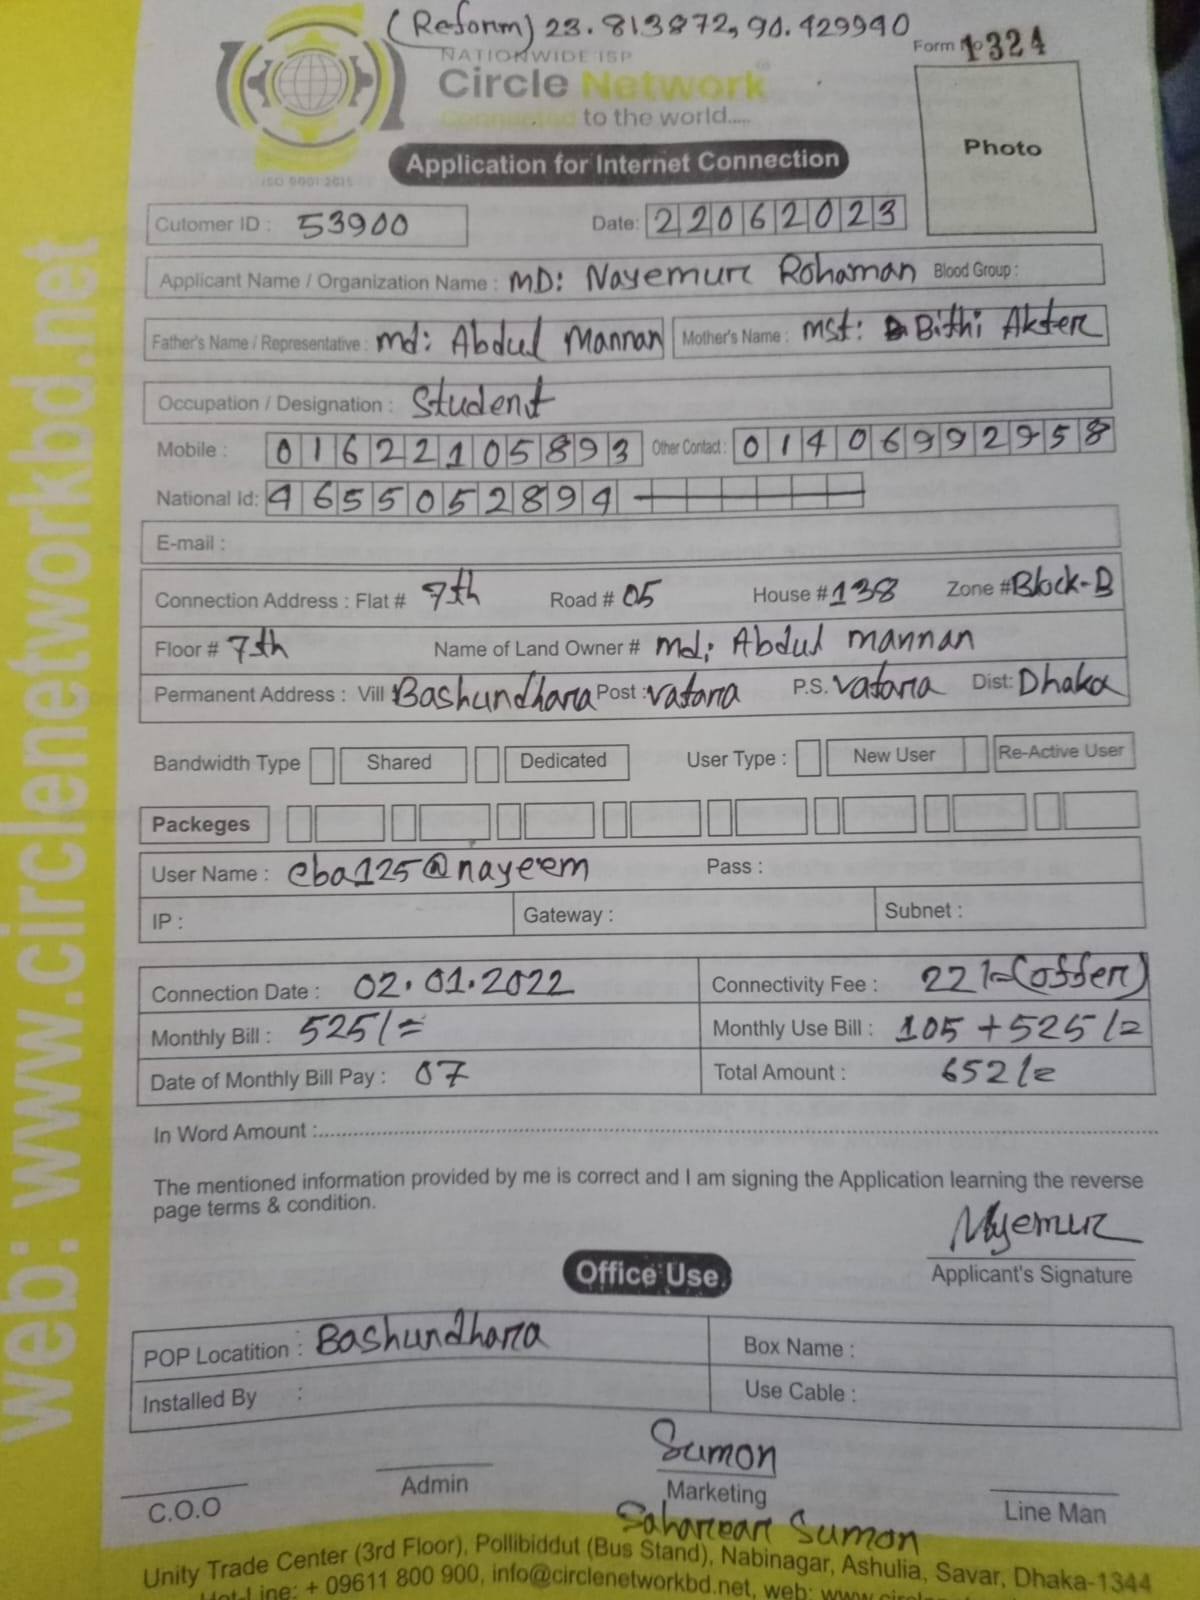 (Reform) 23.813872, 90.429940
NATIONWIDE ISP
Form No 1324
Circle Network
Connected to the world.....
Photo
Application for Internet Connection
ISO 9001:2015
Cutomer ID : 53900 Date: 22062023
Applicant Name / Organization Name : MD: Nayemur Rohaman Blood Group :
Father's Name / Representative : md: Abdul Mannan Mother's Name : mst: Bithi Akter
Occupation / Designation : Student
Mobile : 01622105893 Other Contact : 01406992958
National Id: 4655052894
E-mail :
Connection Address : Flat # 7th Road # 05 House # 138 Zone # Block-B
Floor # 7th Name of Land Owner # md: Abdul mannan
Permanent Address : Vill Bashundhara Post : vatara P.S. vatara Dist: Dhaka
Bandwidth Type Shared Dedicated User Type : New User Re-Active User
Packeges
User Name : eba125@nayeem Pass :
IP : Gateway : Subnet :
Connection Date : 02.01.2022 Connectivity Fee : 22/= (offer)
Monthly Bill : 525/= Monthly Use Bill : 105 + 525/=
Date of Monthly Bill Pay : 07 Total Amount : 652/=
In Word Amount :
The mentioned information provided by me is correct and I am signing the Application learning the reverse
page terms & condition.
Nayemur
Applicant's Signature
Office Use.
POP Locatition : Bashundhara Box Name :
Installed By : Use Cable :
Sumon
C.O.O Admin Marketing Line Man
Saharear Sumon
Unity Trade Center (3rd Floor), Pollibiddut (Bus Stand), Nabinagar, Ashulia, Savar, Dhaka-1344
Hot-Line: + 09611 800 900, info@circlenetworkbd.net, web:
web: www.circlenetworkbd.net